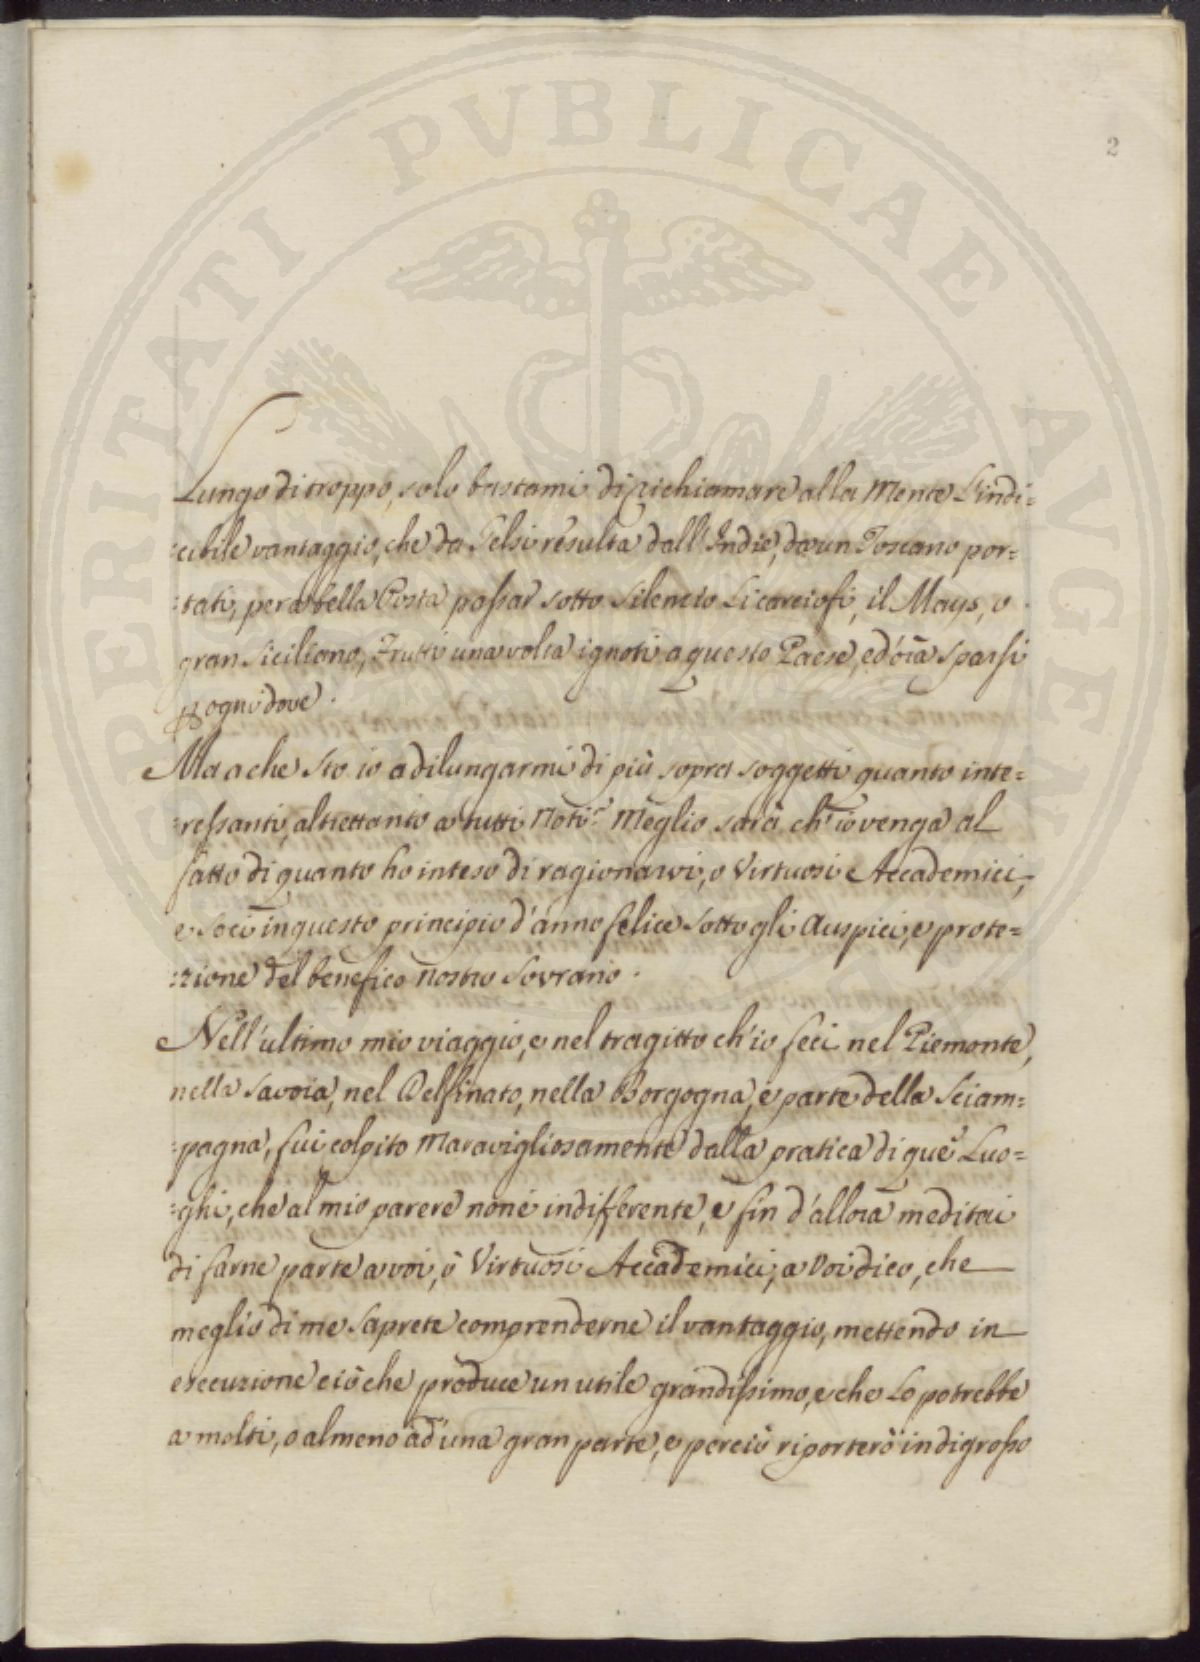 PROSPERITATI PUBLICAE AUGENDAE
2
Lungo di troppo, solo bastami di richiamare alla Mente L'indi=
:cibile vantaggio, che da Gelsi resulta dall'Indie, da un Toscano por=
:tati, per a bella Posta passar sotto Silencio Li carciofi, il Mays, o
gran Siciliano, Frutti una volta ignoti a questo Paese, ed óra sparsi
p ogni dove.
Ma a che sto io a dilungarmi di più sopra soggetti quanto inte=
:ressanti, altrettanto a tutti Noti? Meglio sarà ch'io venga al
fatto di quanto ho inteso di ragionarvi, o Virtuosi Accademici,
e Soci in questo principio d'anno felice sotto gli Auspici, e prote=
:zione del benefico nostro Sovrano.
Nell'ultimo mio viaggio, e nel tragitto ch'io feci nel Piemonte,
nella Savoia, nel Delfinato, nella Borgogna, e parte della Sciam=
:pagna, fui colpito Maravigliosamente dalla pratica di que Luo=
:ghi, che al mio parere non é indifferente, e fin d'allora meditai
di farne parte a voi, ò Virtuosi Accademici, a Voi dico, che
meglio di me Saprete comprenderne il vantaggio, mettendo in
esecuzione ciò che produce un utile grandissimo, e che Lo potrebbe
a molti, o almeno ad una gran parte, e perciò riporterò in digrosso